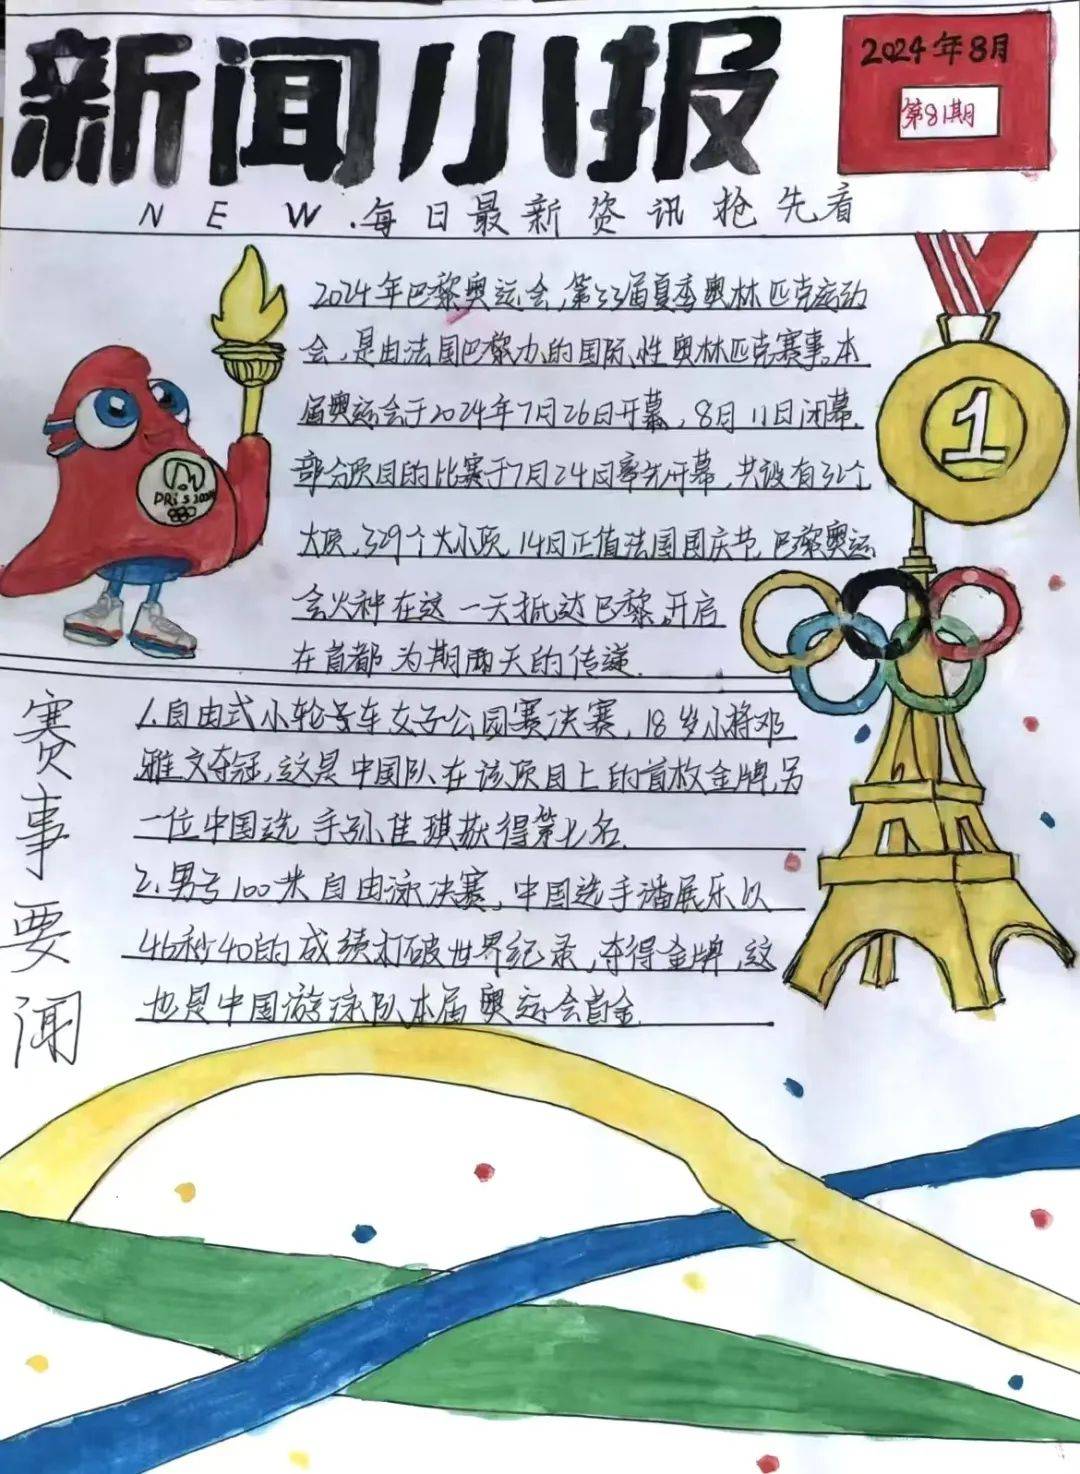 新闻小报
2024年8月
第81期
NEW.每日最新资讯抢先看
2024年巴黎奥运会,第33届夏季奥林匹克运动
会,是由法国巴黎办的国际性奥林匹克赛事,本
届奥运会于2024年7月26日开幕,8月11日闭幕.
部分项目的比赛于7月24日率先开幕,共设有32个
大项,329个大小项,14日正值法国国庆节,巴黎奥运
会火种在这一天抵达巴黎,开启
在首都为期两天的传递.
PRiS 2024
1
赛事要闻
1.自由式小轮号车女子公园赛决赛,18岁小将邓
雅文夺冠,这是中国队在该项目上的首枚金牌,另
一位中国选手孙佳琪获得第七名.
2.男子100米自由泳决赛,中国选手潘展乐以
46秒40的成绩打破世界纪录,夺得金牌,这
也是中国游泳队本届奥运会首金.